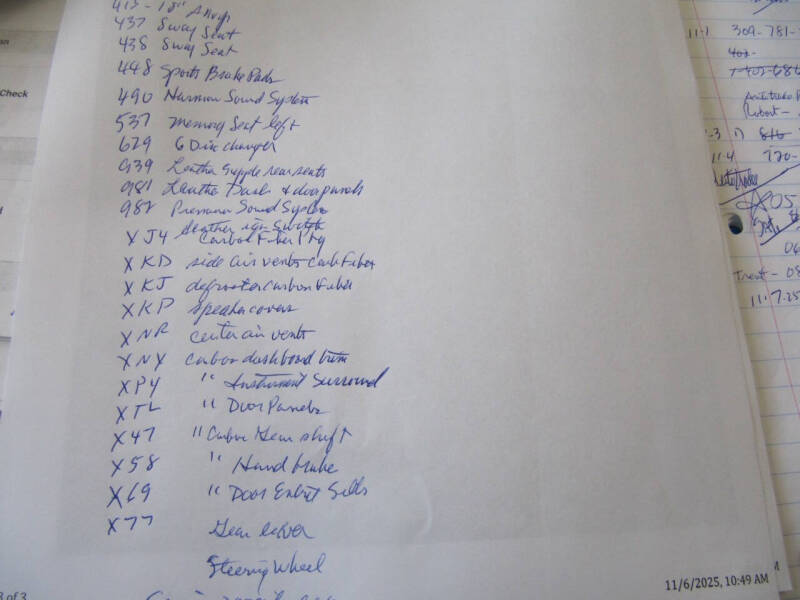 413 - 18"
437 Sway Seat
438 Sway Seat
448 Sports Brake Pads
490 Harmon Sound System
537 Memory Seat left
629 6 Disc changer
939 Leather rear seats
981 Leather Dash & door panels
982 Premium Sound System
Leather ign. Switch
XJ4 Carbon Fiber
XKD side air vents Carb Fiber
XKJ defroster carbon Fiber
XKP speaker covers
XNR center air vents
XNY carbon dashboard trim
XPY " Instrument Surround
XTL " Door Panels
X47 " Carbon Gear shift
X58 " Hand brake
X69 " Door Sills
X77 Gear
Steering Wheel
3 of 3
11/6/2025, 10:49 AM
Check
11-1 304-781-
402-
Robert -
-3
11-4 770-
05
Trent - 08
11.7.25